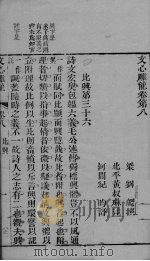 文心雕龍卷第八
梁劉勰撰
北平黃叔琳注
河間紀昀評
比興第三十六
詩文宏奧包韞六義毛公述傳獨標興體豈不以風通
而賦同比顯而興隱哉故比者附也興者起也附理
者切類以指事起情者依微以擬議起情故興體以
立附理故比例以生比則畜憤以斥言興則環譬以
諷蓋隨時之義不一故詩人之志有二也觀夫興
文心雕龍卷八 比興